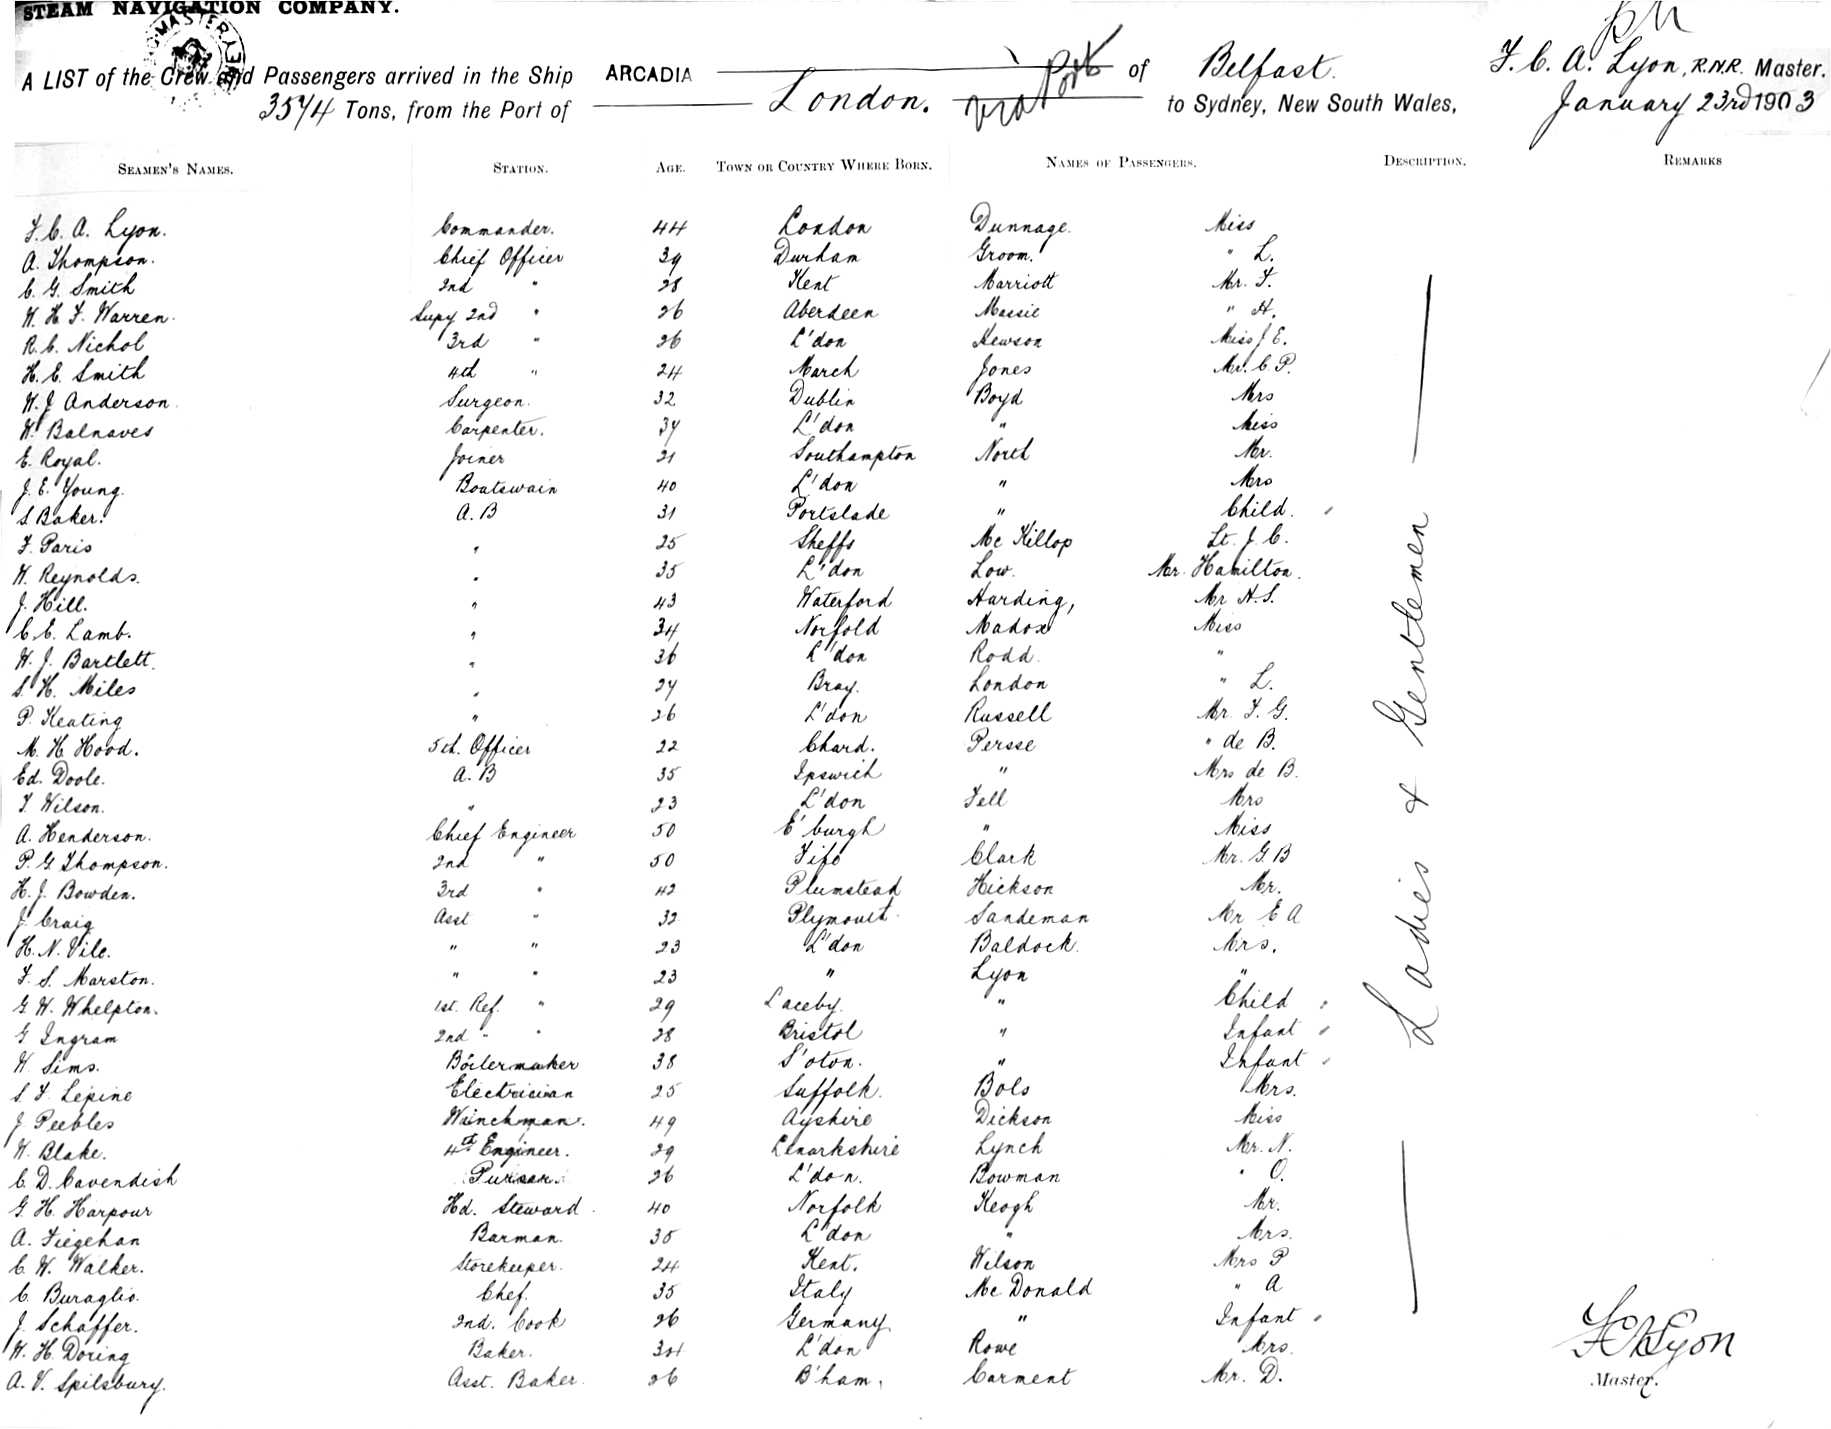 STEAM NAVIGATION COMPANY.
A LIST of the Crew and Passengers arrived in the Ship ARCADIA of Belfast. F. C. A. Lyon, R.N.R. Master.
3574 Tons, from the Port of London. via ports to Sydney, New South Wales, January 23rd 1903
SEAMEN'S NAMES. STATION. AGE. TOWN OR COUNTRY WHERE BORN. NAMES OF PASSENGERS. DESCRIPTION. REMARKS
F. C. A. Lyon. Commander. 44 London Dunnage. Miss
A. Thompson. Chief Officer 39 Durham Groom. " L.
C. G. Smith 2nd " 28 Kent Marriott Mr. F.
W. H. F. Warren. Supy 2nd " 26 Aberdeen Massie " H.
R. C. Nichol 3rd " 26 L'don Hewson Miss J E.
H. E. Smith 4th " 24 March Jones Mr. C. P.
W. J Anderson. Surgeon. 32 Dublin Boyd Mrs
W. Balnaves Carpenter. 37 L'don " Miss
E. Royal. Joiner 21 Southampton North Mr.
J. E. Young. Boatswain 40 L'don " Mrs
S Baker. A. B 31 Portslade " Child.
F. Paris " 25 Sheffs Mc Killop Lt. J. C.
W. Reynolds. " 35 L'don Low. Mr. Hamilton.
J. Hill. " 43 Waterford Harding, Mr H. S.
C. E. Lamb. " 34 Norfold Madox Miss
W. J. Bartlett. " 36 L'don Rodd. "
S. H. Miles " 27 Bray. London " L.
P. Keating " 26 L'don Russell Mr. F. G.
M. H Hood. 5th. Officer 22 Chard. Persse " de B.
Ed. Doole. A. B 35 Ipswich " Mrs de B.
T. Wilson. " 23 L'don Fell Mrs
A. Henderson. Chief Engineer 50 E'burgh " Miss
P. G Thompson. 2nd " 50 Fife Clark Mr. G B
H. J. Bowden. 3rd " 42 Plumstead Hickson Mr.
J Craig Asst " 32 Plymouth. Sandeman Mr E A
H. N. Vile. " " 23 L'don Baldock. Mrs.
F. S. Marston. " " 23 " Lyon "
G. W. Whelpton. 1st. Ref. " 29 Laceby. " Child
G Ingram 2nd " " 28 Bristol " Infant
W. Sims. Boilermaker 38 S'oton. " Infant
S. F. Lepine Electrician 25 Suffolk. Bols Mrs.
J Peebles Winchman. 49 Ayshire Dickson Miss
W. Blake. 4th Engineer. 29 Lanarkshire Lynch Mr. N.
C. D. Cavendish Purser. 26 L'don. Bowman " O.
G. H. Harpour Hd. Steward. 40 Norfolk Keogh Mr.
A. Fiegehan Barman. 35 L'don " Mrs.
C. W. Walker. Storekeeper. 24 Kent. Wilson Mrs P
C. Buraglio. Chef. 35 Italy Mc Donald " A
J. Schaffer. 2nd. Cook 26 Germany. " Infant
W. H. Doring Baker. 30 L'don Rowe Mrs.
A. V. Spilsbury. Asst. Baker. 26 B'ham. Carment Mr. D.
Ladies & Gentlemen
F C A Lyon
Master.